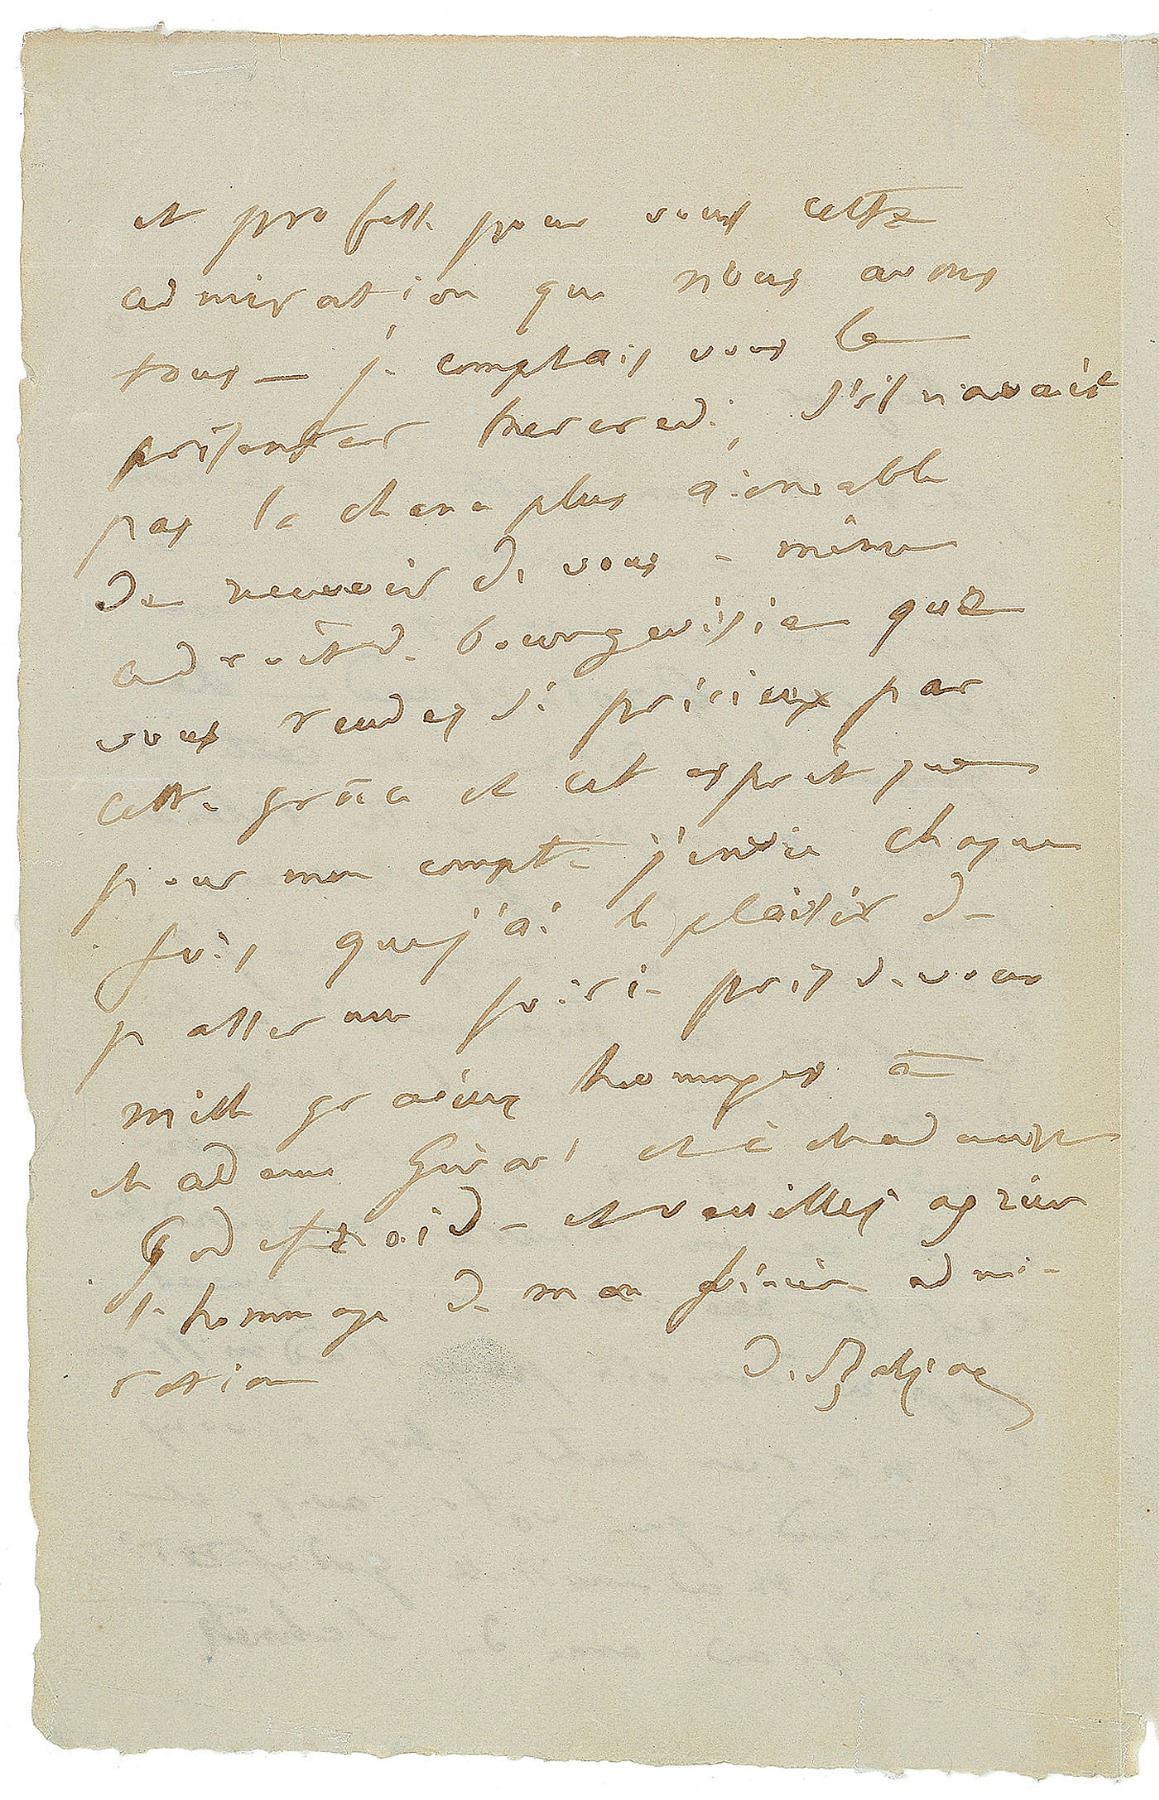 et professe pour vous cette
admiration que nous avons
tous — je comptais vous le
présenter mercredi, s'il n'avait
pas la chance plus aimable
de recevoir de vous-même
ce droit de bourgeoisie que
vous rendez si précieux par
cette grâce et cet esprit que
pour mon compte j'envie chaque
fois que j'ai le plaisir de
passer une soirée près de vous
mille gracieux hommages à
Madame Gérard et à Mad
Godefroid — et veuillez agréer
l'hommage de mon sincère admi-
ration
de Balzac